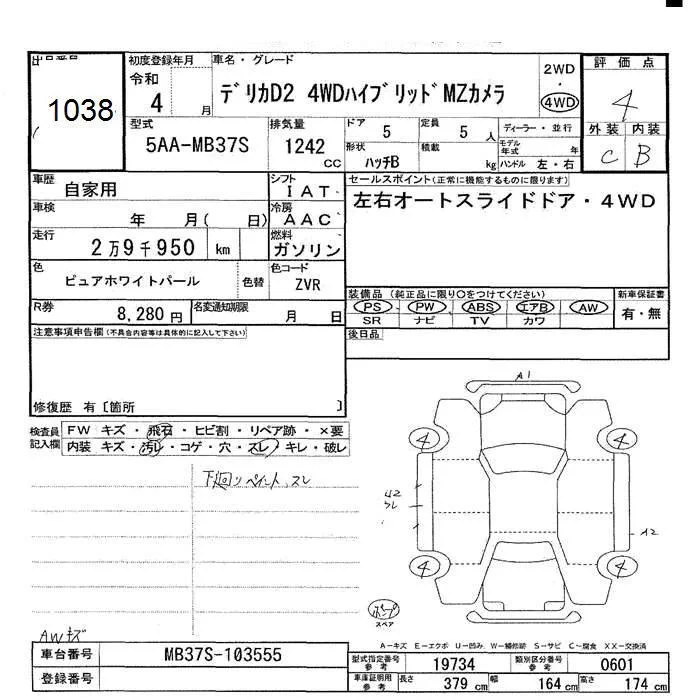 出品番号
1038
初度登録年月
令和
4 月
車名・グレード
デリカD2 4WDハイブリッドMZカメラ
2WD
・
4WD
評価点
4
外装 内装
C B
型式
5AA-MB37S
排気量
1242
CC
ドア 5
定員 5 人
形状
ハッチB
積載 kg
ディーラー・並行
モデル年式 年
ハンドル 左・右
車歴 自家用
シフト
IAT
車検 年 月( 日)
冷房
AAC
走行
2万9千950 km
燃料
ガソリン
色
ピュアホワイトパール
色替
色コード
ZVR
R券 8,280円
名変通知期限 月 日
セールスポイント(正常に機能するものに限ります)
左右オートスライドドア・4WD
装備品(純正品に限り〇をつけてください)
PS PW ABS エアB AW
SR ナビ TV カワ
新車保証書
有・無
後日品
注意事項申告欄(不具合内容等は具体的に記入して下さい)
修復歴 有〔箇所 〕
検査員
記入欄
FW キズ・飛石・ヒビ割・リペア跡・×要
内装 キズ・汚レ・コゲ・穴・スレ・キレ・破レ
下回りペイント、スレ
A1
4 4
U2
A2
4 4
スペア
AWキズ
A-キズ E-エクボ U-凹み W-補修跡 S-サビ C-腐食 XX-交換済
車台番号 MB37S-103555
登録番号
型式指定番号
参考
19734
類別区分番号
参考
0601
車庫証明用
参考
長さ 379 cm 幅 164 cm 高さ 174 cm